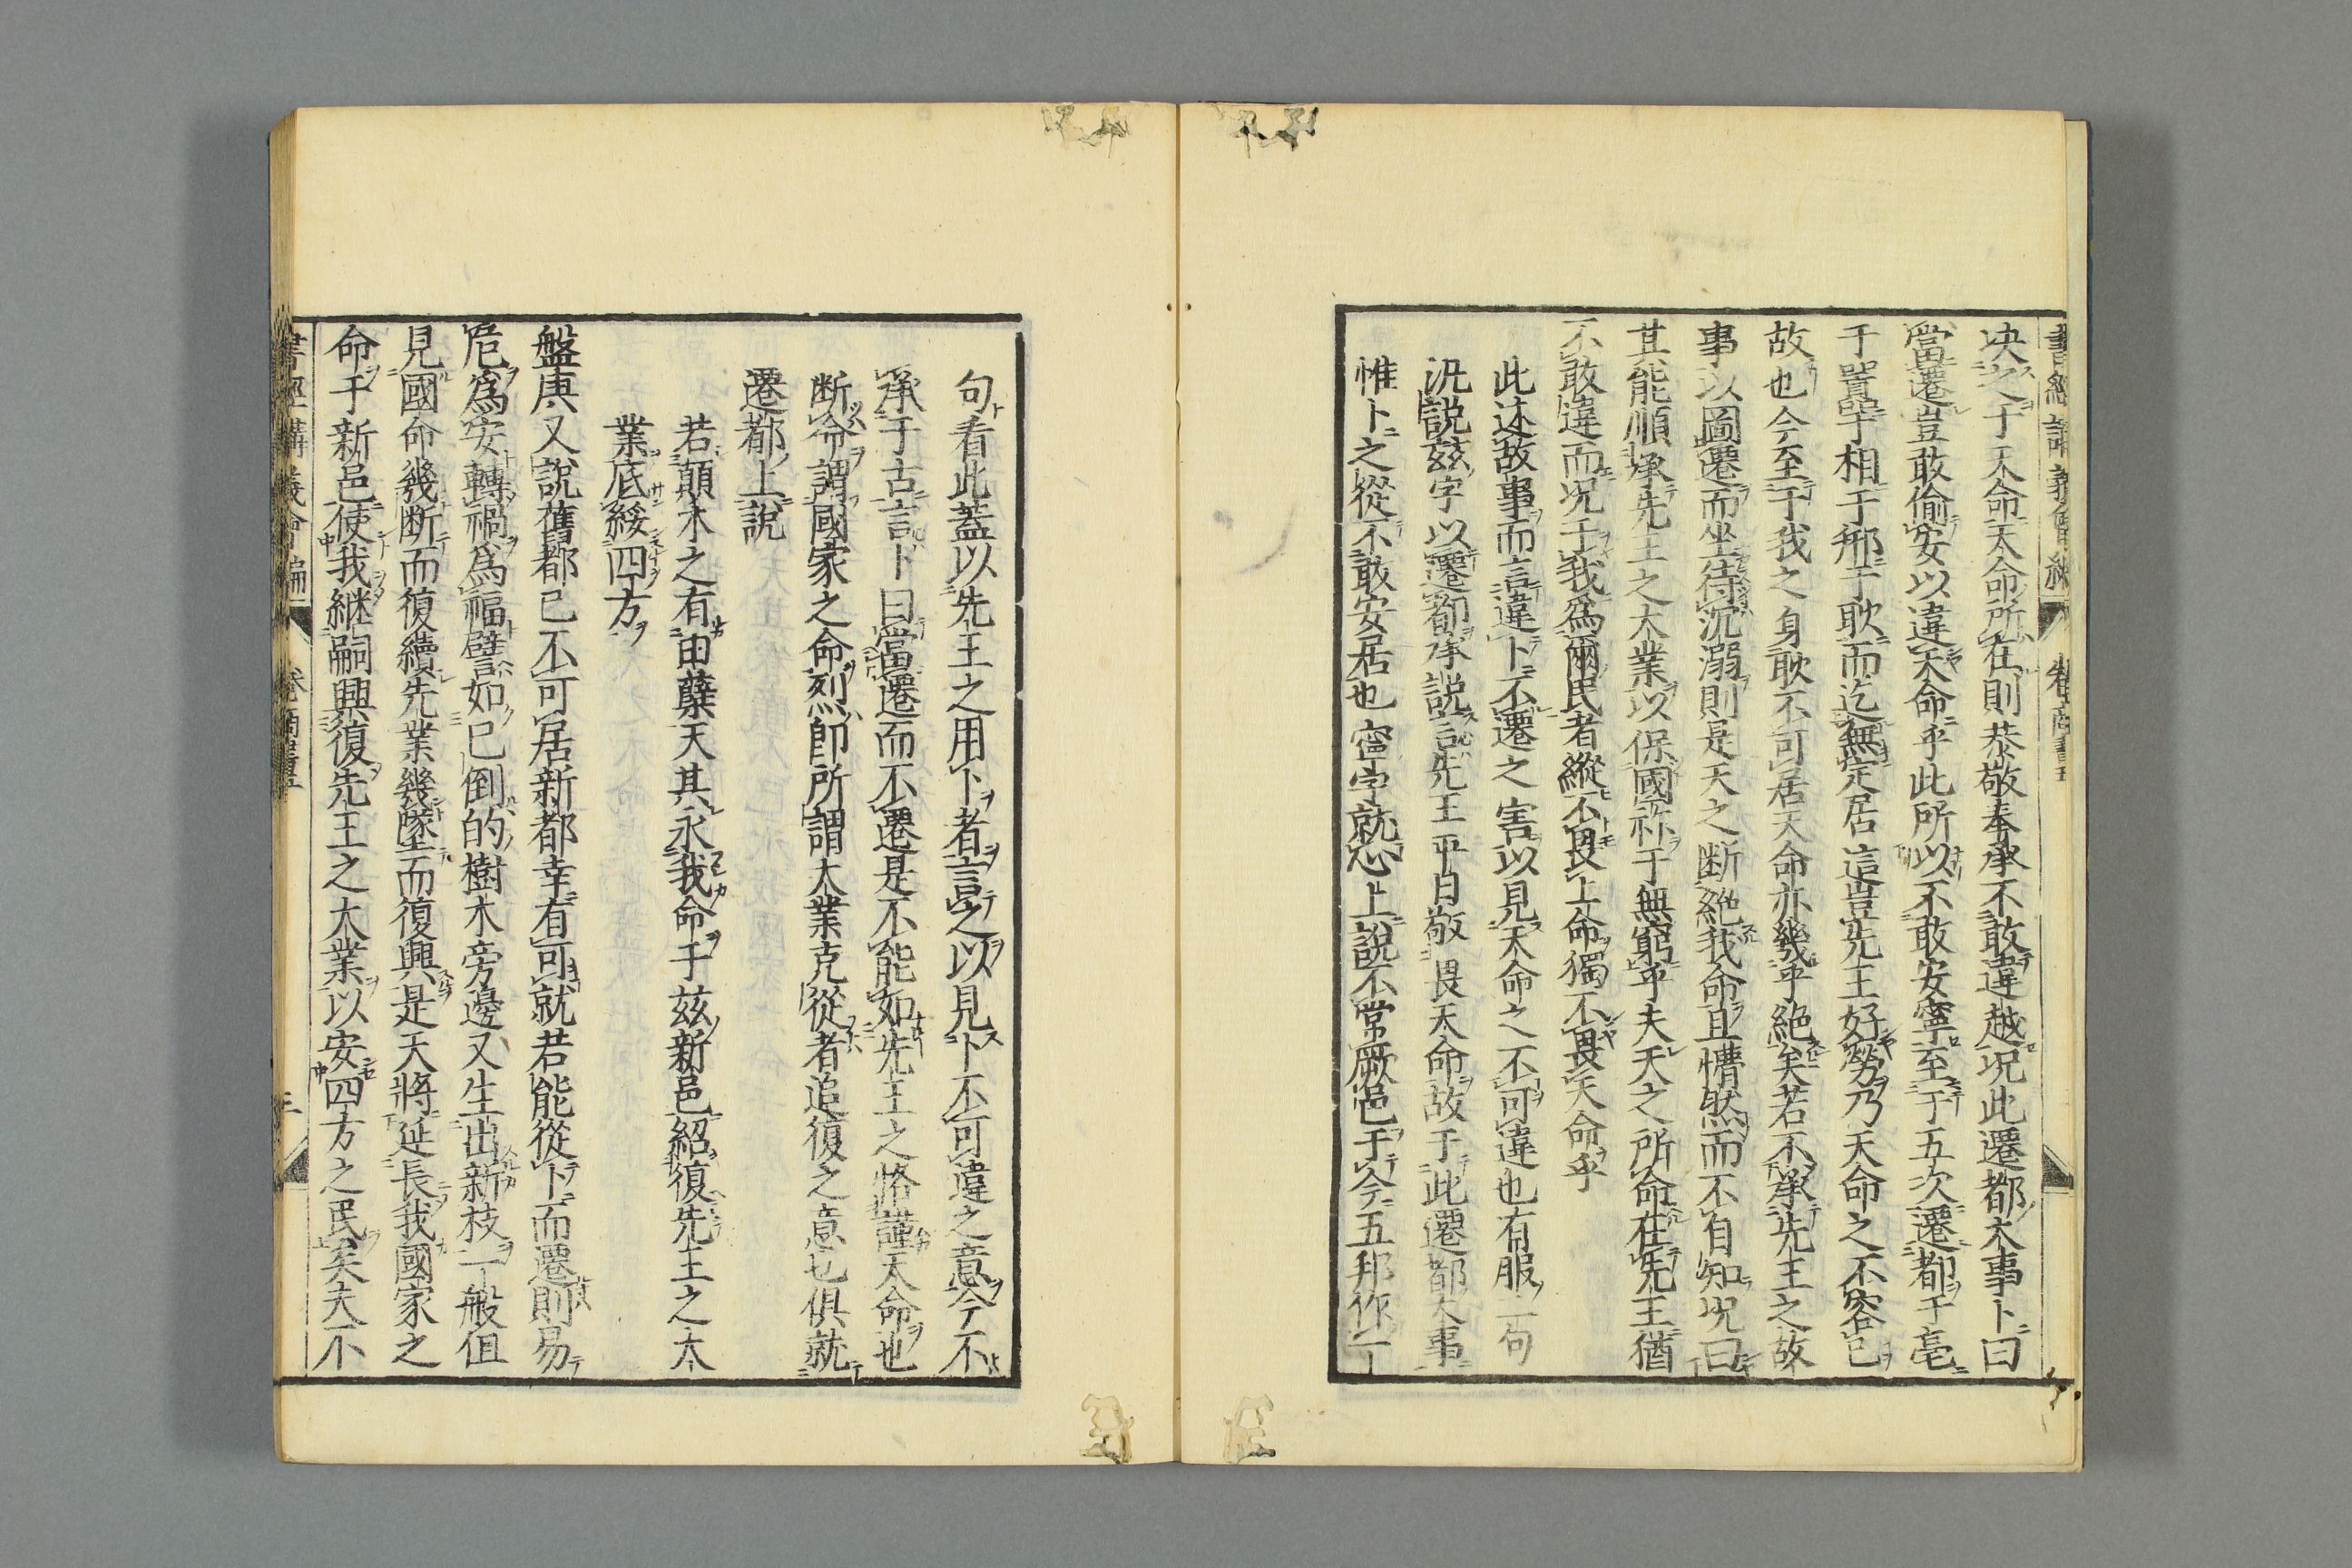 書經講義會編 卷 商書五
决之于天命天命所在則恭敬奉承不敢違越况此遷都大事卜曰
當遷豈敢偷安以違天命乎此所以不敢安寧至于五次遷都于亳
于囂于相于邢于耿而迄無定居這豈先王好勞乃天命之不容已
故也今至于我之身耿不可居天命亦幾乎絶矣若不承先王之故
事以圖遷而坐待沉溺則是天之断絶我命且懵然而不自知况曰
其能順承先王之大業以保國祚于無窮乎夫天之所命在先王猶
不敢違而况于我爲爾民者縱不畏上命獨不畏天命乎
此述故事而言違卜不遷之害以見天命之不可違也有服一句
汎説玆字以遷都承説言先王平日敬畏天命故于此遷都大事
惟卜之從不敢安居也寧字就心上説不常厥邑于今五邦作一
句看此蓋以先王之用卜者言之以見卜不可違之意今不
承于古言卜曰當遷而不遷是不能如先王之恪謹天命也
断命謂國家之命烈即所謂大業克從者追復之意也俱就
遷都上説
若顛木之有由蘖天其永我命于玆新邑紹復先王之大
業底綏四方
盤庚又説舊都已不可居新都幸有可就若能從卜而遷則易
危爲安轉禍爲福譬如已倒的樹木旁邊又生出新枝一般但
見國命幾断而復續先業幾墜而復興是天將延長我國家之
命于新邑使我継嗣興復先王之大業以安四方之民矣夫不
書經講義會編 卷 商書五